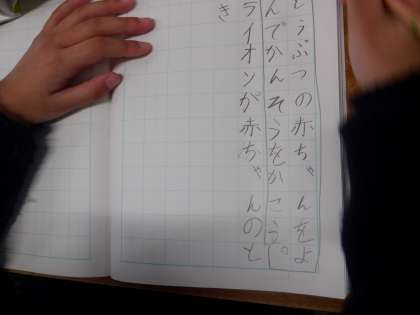 どうぶつの赤ちゃんをよ
んでかんそうをかこう。
ライオンが赤ちゃんのと
き